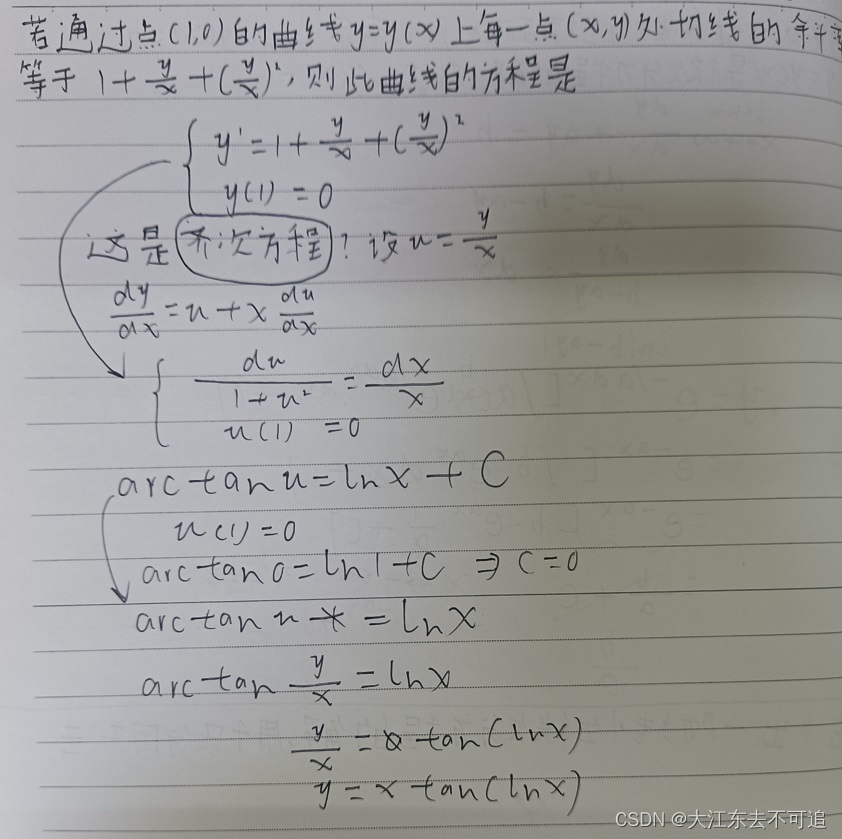 若通过点(1,0)的曲线y=y(x)上每一点(x,y)处切线的斜率
等于 1+y/x+(y/x)²,则此曲线的方程是
{ y'=1+y/x+(y/x)²
y(1)=0
这是齐次方程?设u=y/x
dy/dx=u+x du/dx
{ du/(1+u²)=dx/x
u(1)=0
arctanu=lnx+C
u(1)=0
arctan0=ln1+C ⇒ C=0
arctan u = lnx
arctan y/x = lnx
y/x = tan(lnx)
y=x tan(lnx)
CSDN @大江东去不可追